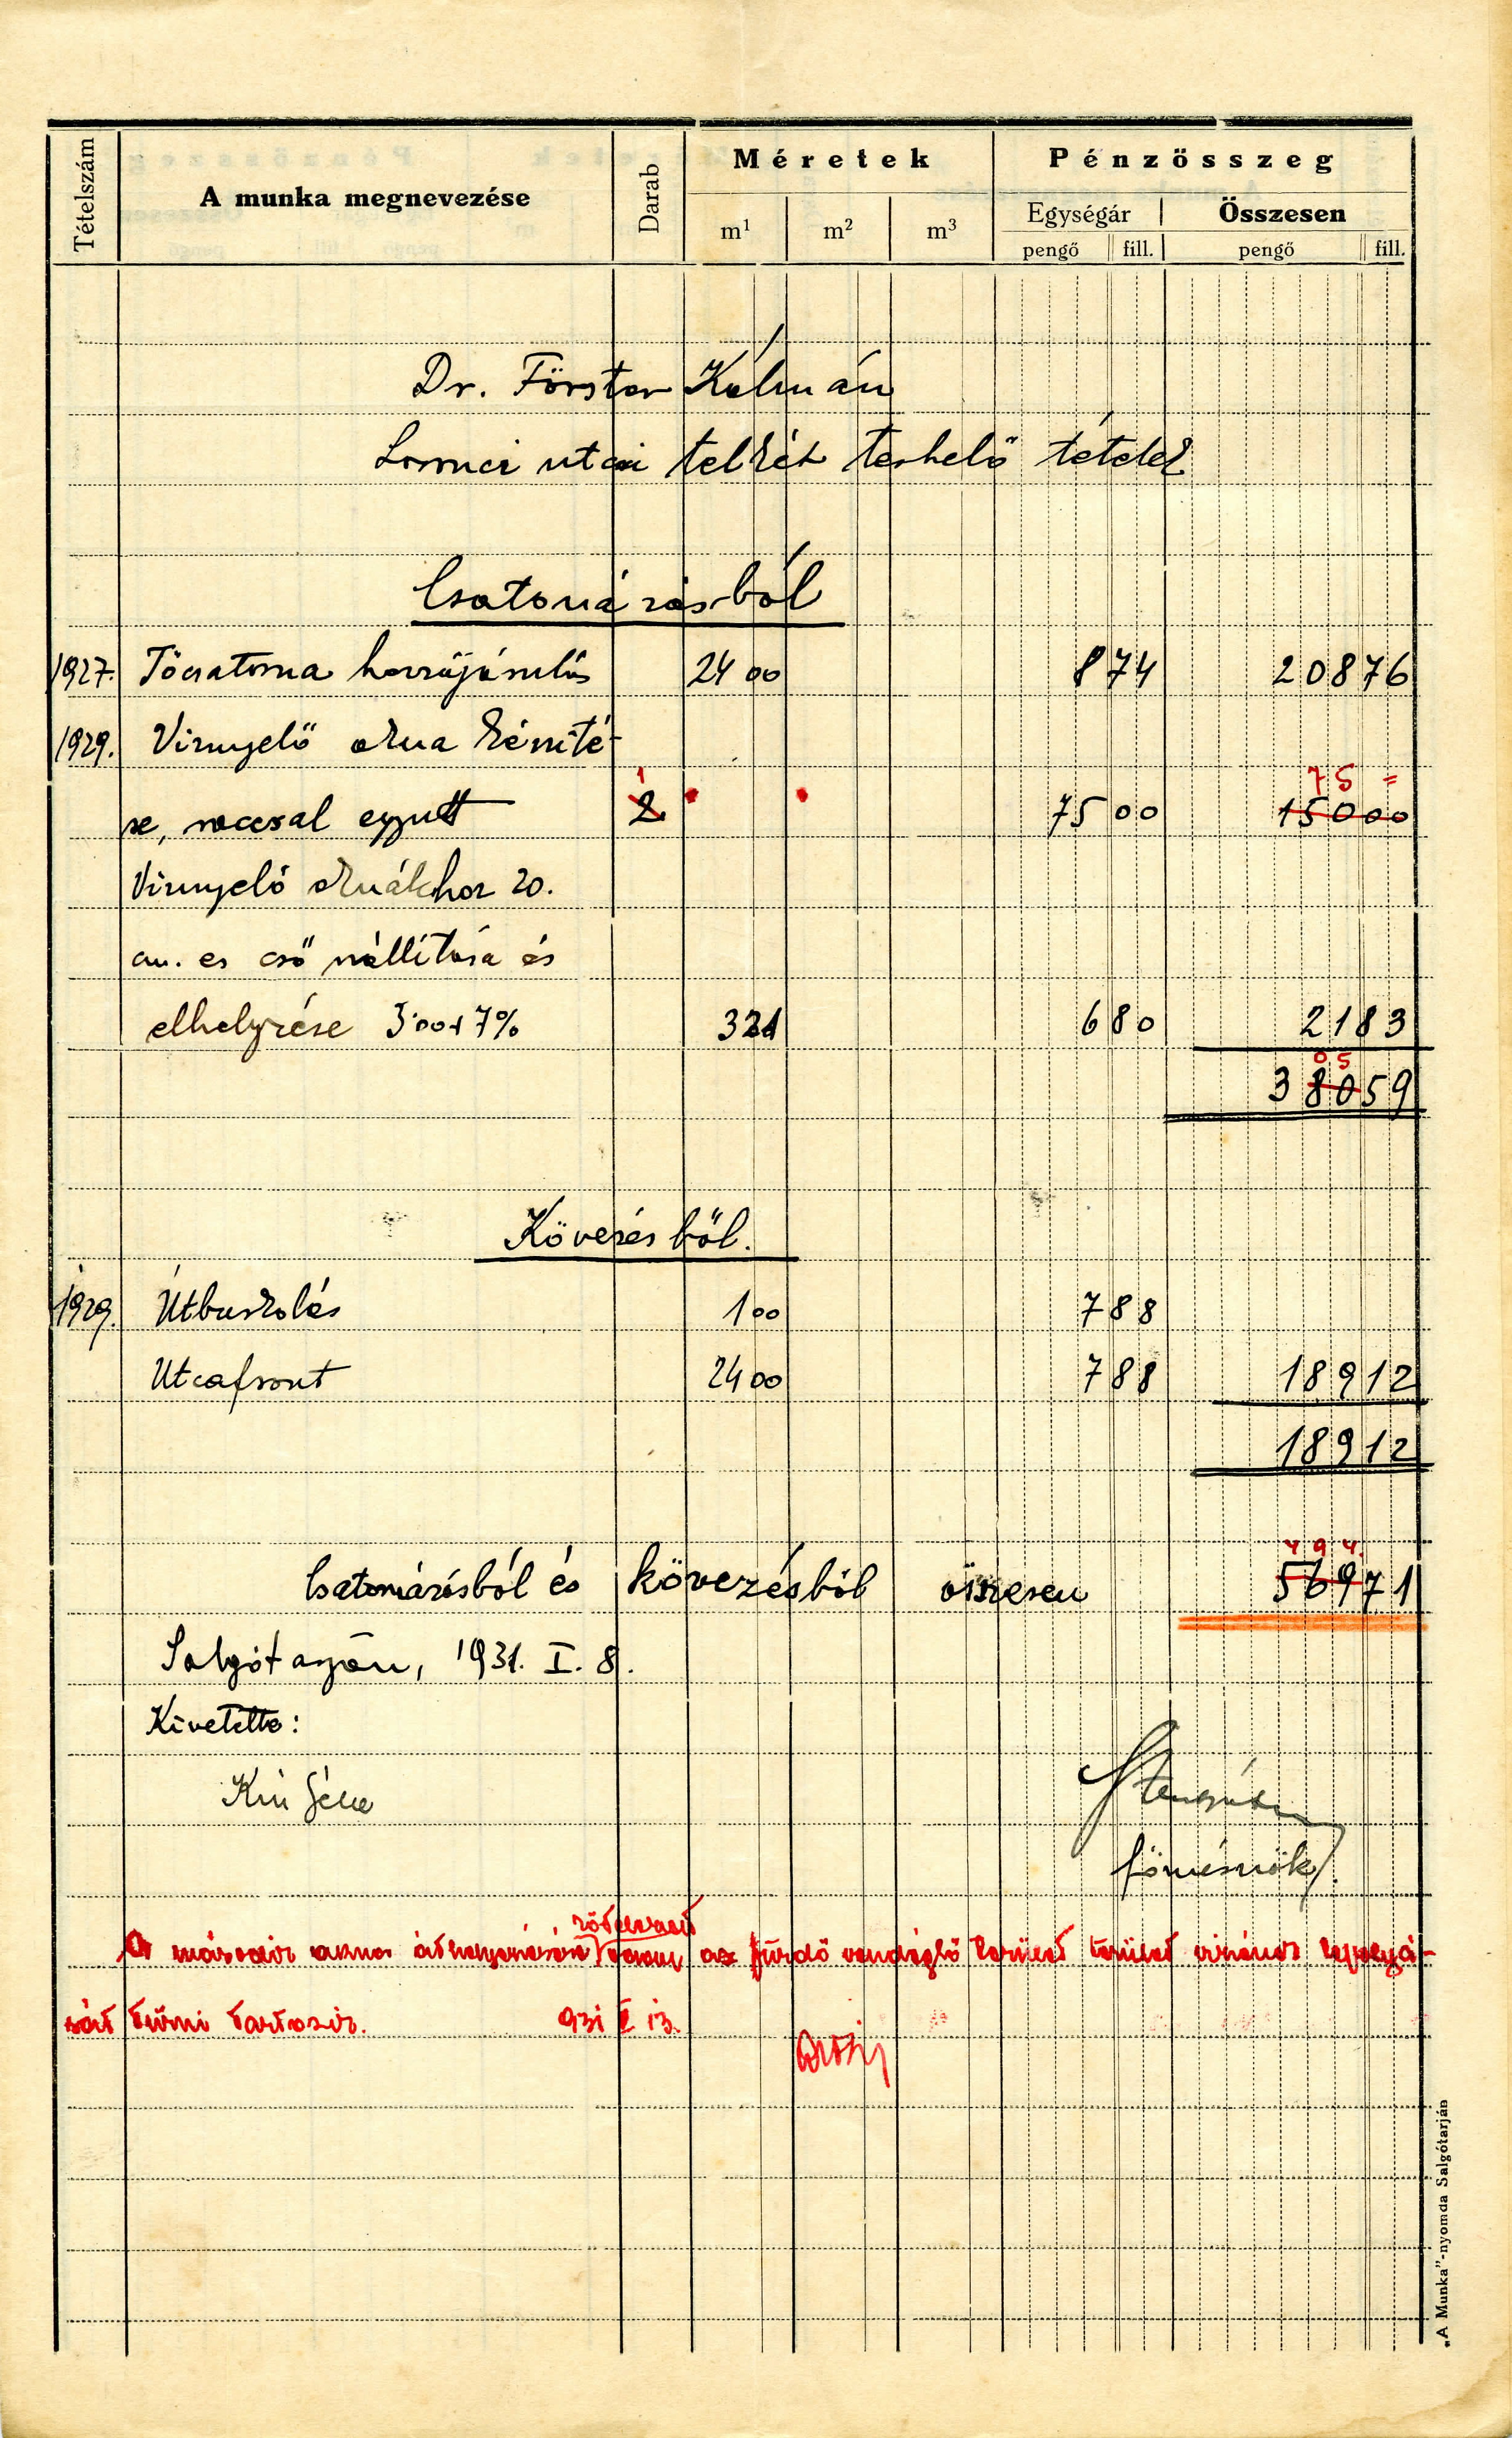 Tételszám A munka megnevezése Darab Méretek Pénzösszeg
m¹ m² m³ Egységár Összesen
pengő fill. pengő fill.
Dr. Förster Kálmán
Losonci utcai telkét terhelő tételek
Csatornázásból
1927. Főcsatorna hozzájárulás 24 00 8 74 208 76
1929. Víznyelő akna készíté-
75 =
se, ráccsal együtt 1 2 75 00 150 00
Víznyelő aknákhoz 20.
cm. es cső szállítása és
elhelyezése 3'00+7% 3 21 6 80 21 83
0 5
380 59
Kövezésből.
1929. Útburkolás 1 00 7 88
Utcafront 24 00 7 88 189 12
189 12
4 9 4
Csatornázásból és kövezésből összesen 569 71
Salgótarján, 1931. I. 8.
Kivetette:
Kis Géza
főmérnök
A második akna áthelyezésére az fürdő vendéglő terület
sát tűrni tartozik. 931 I 13.
„A Munka”-nyomda Salgótarján